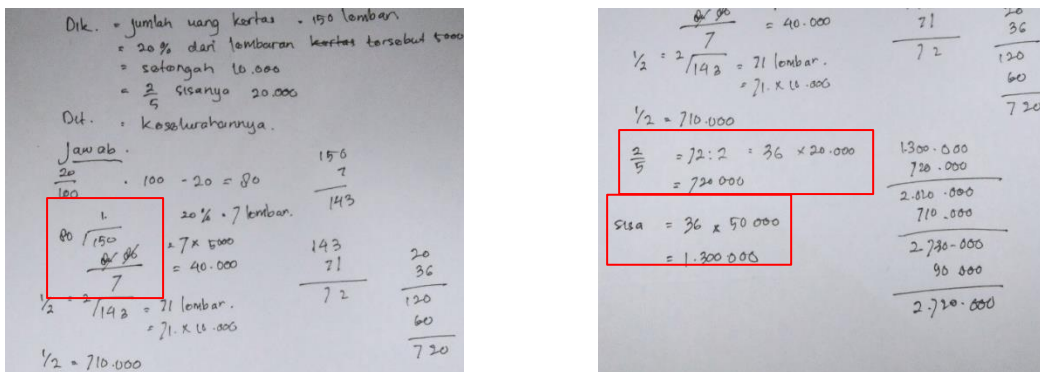 Dik. = jumlah uang kertas = 150 lembar
= 20% dari lembaran kertas tersebut 5000
= setengah 10.000
= 2/5 sisanya 20.000
Dit. = keseluruhannya.
Jawab.
20/100 = 100 - 20 = 80
150
7
143
1.
80 √150
7
20% = 7 lembar.
= 7 x 5000
= 40.000
143
71
72
20
36
120
60
720
1/2 = 2 √143 = 71 lembar.
= 71. x 10.000
1/2 = 710.000
7
= 40.000
71
72
20
36
120
60
720
1/2 = 2 √143 = 71 lembar.
= 71. x 10.000
1/2 = 710.000
2/5 = 72 : 2 = 36 x 20.000
= 720 000
sisa = 36 x 50 000
= 1.300 000
1.300.000
720.000
2.020.000
710.000
2.730.000
90 000
2.720.000